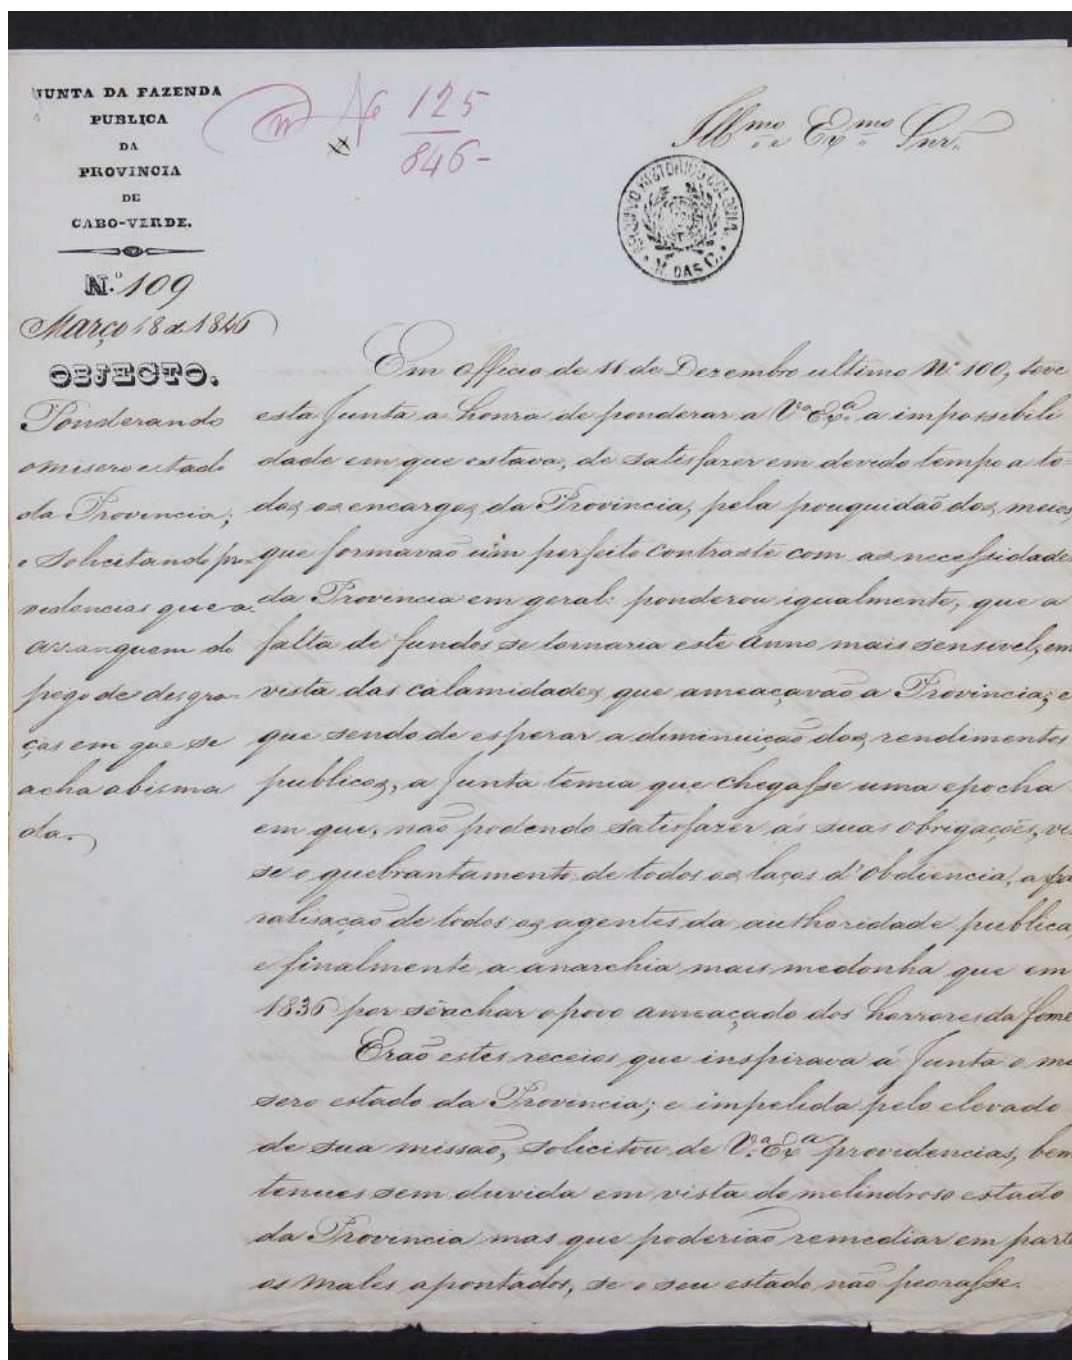 JUNTA DA FAZENDA
PUBLICA
DA
PROVINCIA
DE
CABO-VERDE.
N.º 109
Março 18 de 1846
OBJECTO.
Ponderando
o misero estado
da Provincia;
e Solicitando pro-
videncias que a
arranquem do
pego de desgra-
ças em que se
acha abisma
da.
Nº 125
846-
Ill.mo e Ex.mo Snr.
ARQUIVO HISTORICO COLONIAL
M. DAS C.
Em officio de 11 de Dezembro ultimo Nº 100, teve
esta Junta a honra de ponderar a V.ª Ex.ª a impossibili
dade em que estava, de satisfazer em devido tempo a to-
dos os encargos da Provincia, pela pouquidaõ dos meios,
que formavaõ um perfeito contraste com as necessidades
da Provincia em geral: ponderou igualmente, que a
falta de fundos se tornaria este anno mais sensivel, em
vista das calamidades que ameaçavaõ a Provincia; e
que sendo de esperar a diminuiçaõ dos rendimentos
publicos, a Junta temia que chegasse uma epocha
em que, naõ podendo satisfazer ás suas obrigações,
se o quebrantamento de todos os laços d'obdiencia, a pa
ralisaçaõ de todos os agentes da authoridade publica,
e finalmente a anarchia mais medonha que em
1836 por se achar o povo ameaçado dos horrores da fome
Eraõ estes receios que inspirava á Junta o mi
sero estado da Provincia; e impelida pelo elevado
de sua missaõ, solicitou de V.ª Ex.ª providencias, bem
tenues sem duvida em vista do melindroso estado
da Provincia mas que poderiaõ remediar em parte
os males apontados, se o seu estado naõ peorasse.